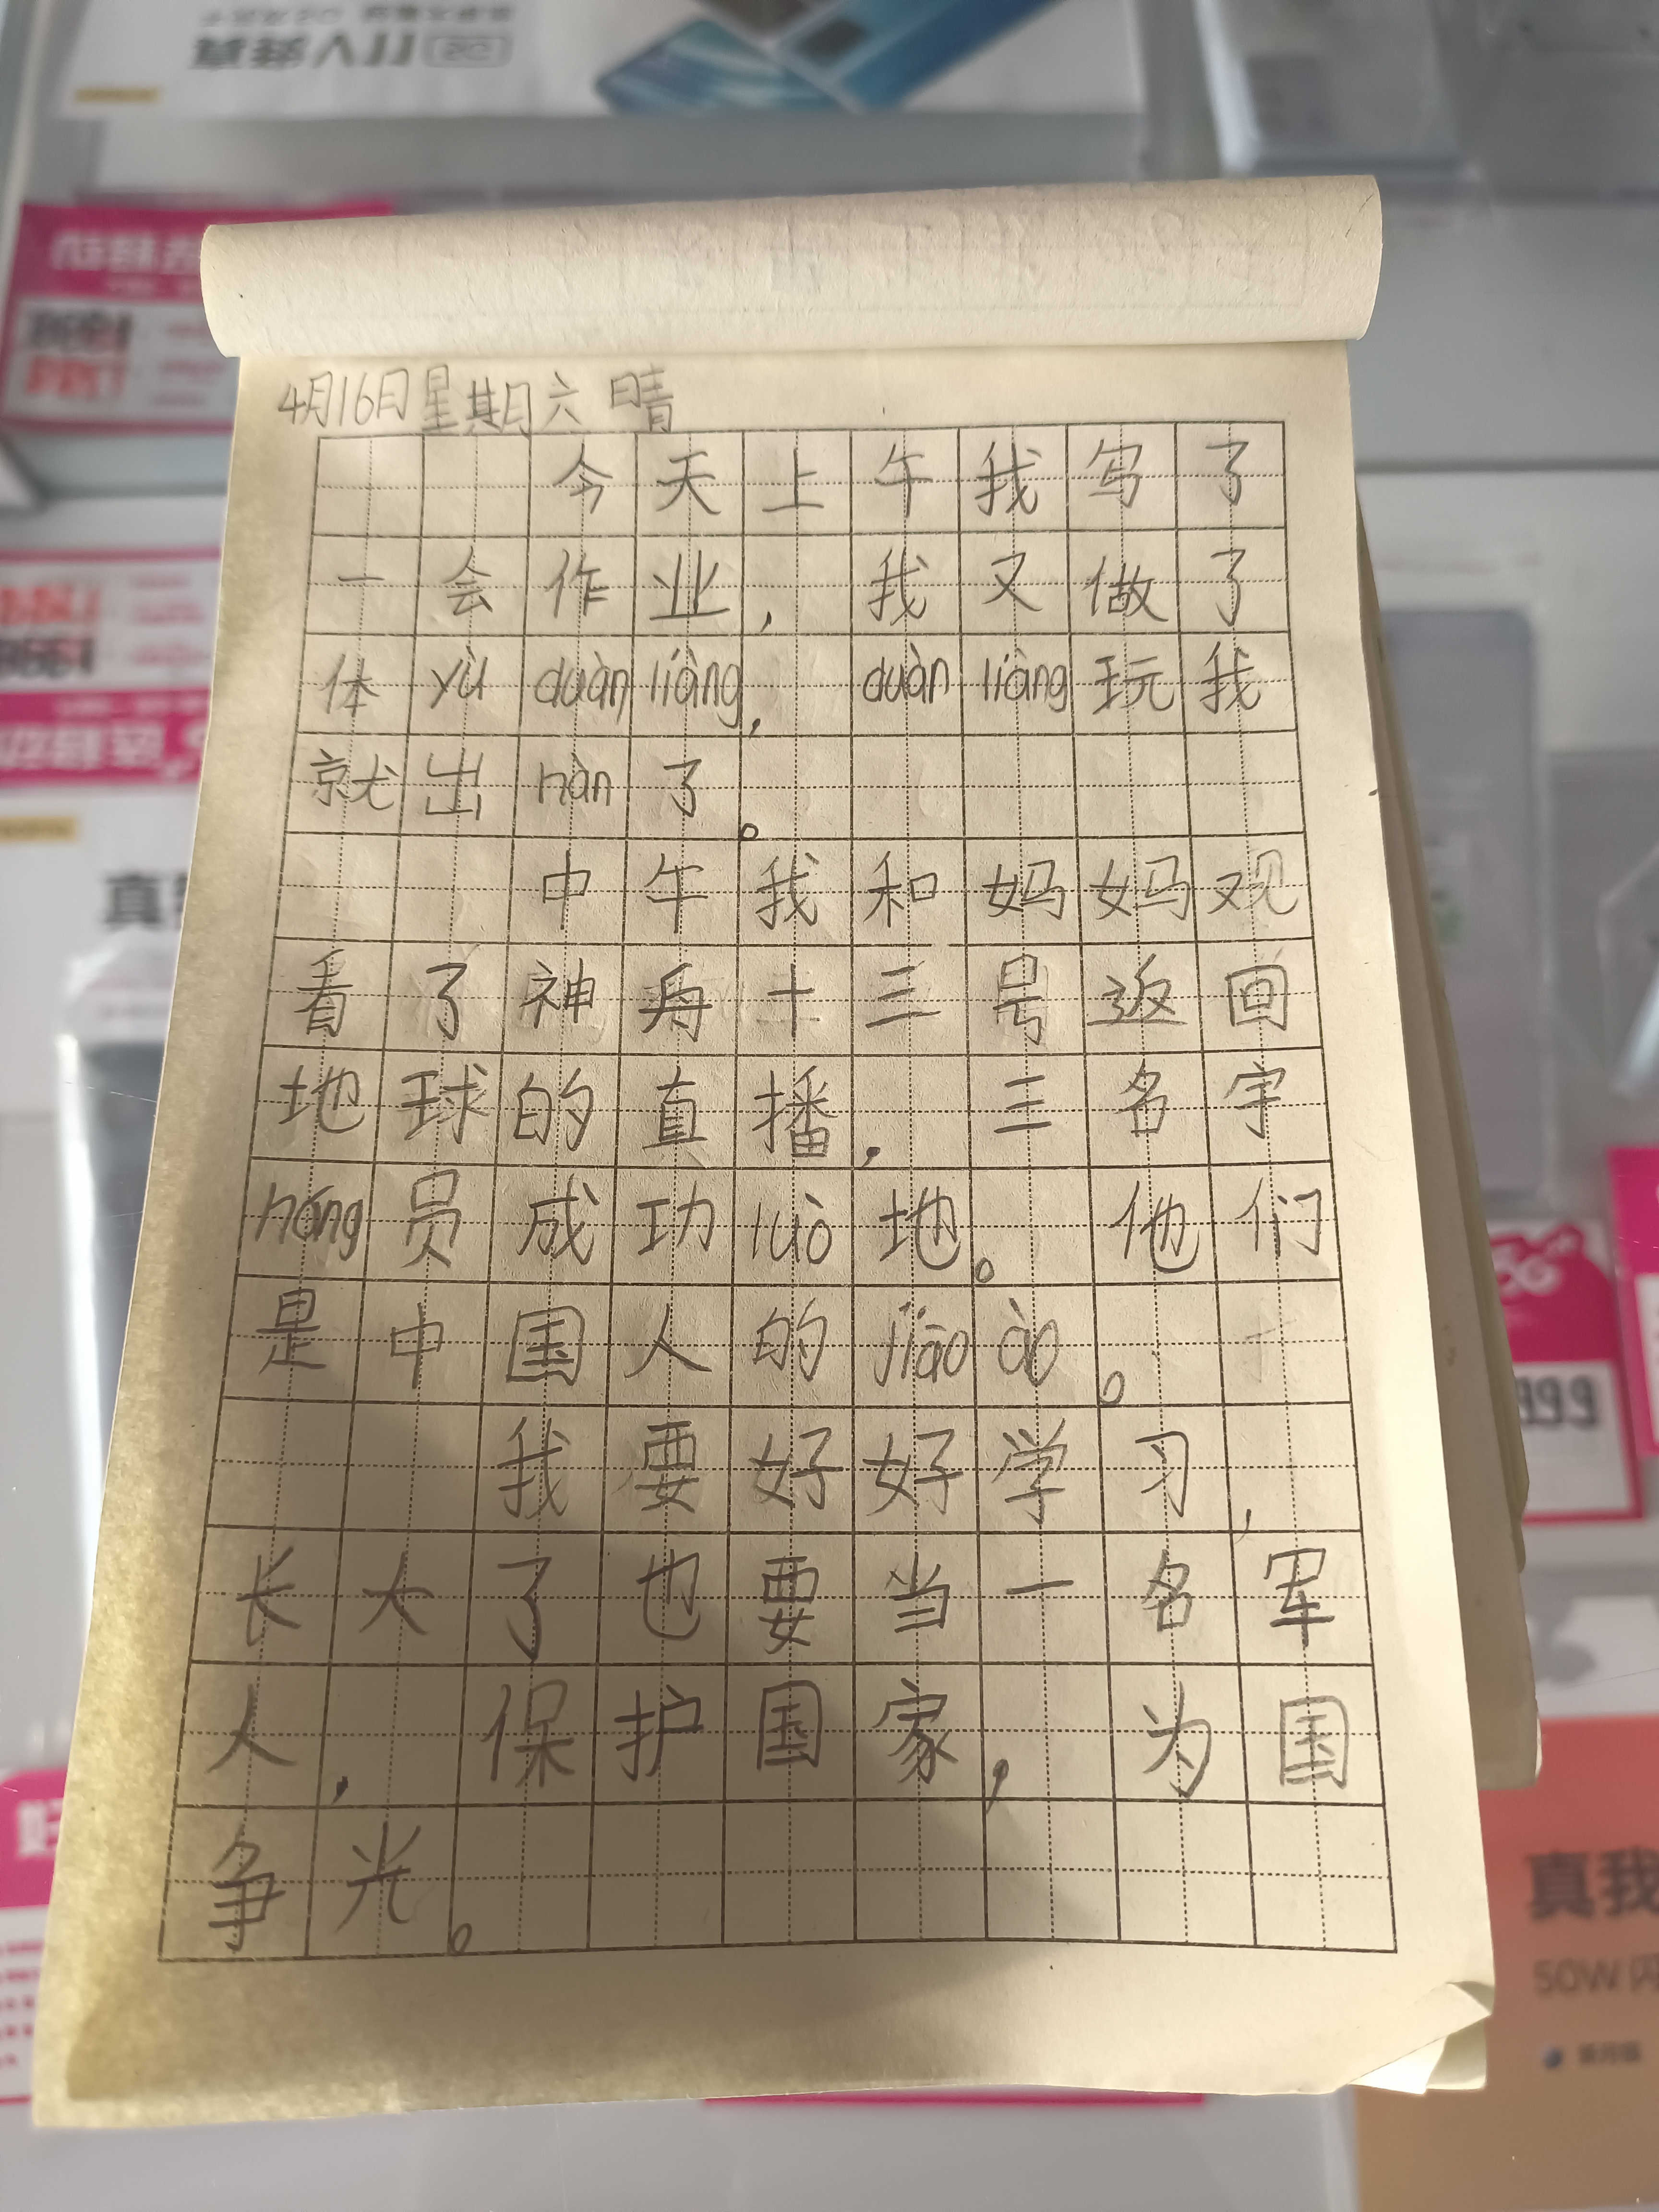 4月16日星期六 晴
今天上午我写了
一会作业，我又做了
体yù duàn liàng，duàn liàng玩我
就出hàn了。
中午我和妈妈观
看了神舟十三号返回
地球的直播，三名宇
háng员成功luò地。他们
是中国人的jiāo ào。
我要好好学习，
长大了也要当一名军
人，保护国家，为国
争光。
真我V11 5G
真我
999
真我
50W 闪